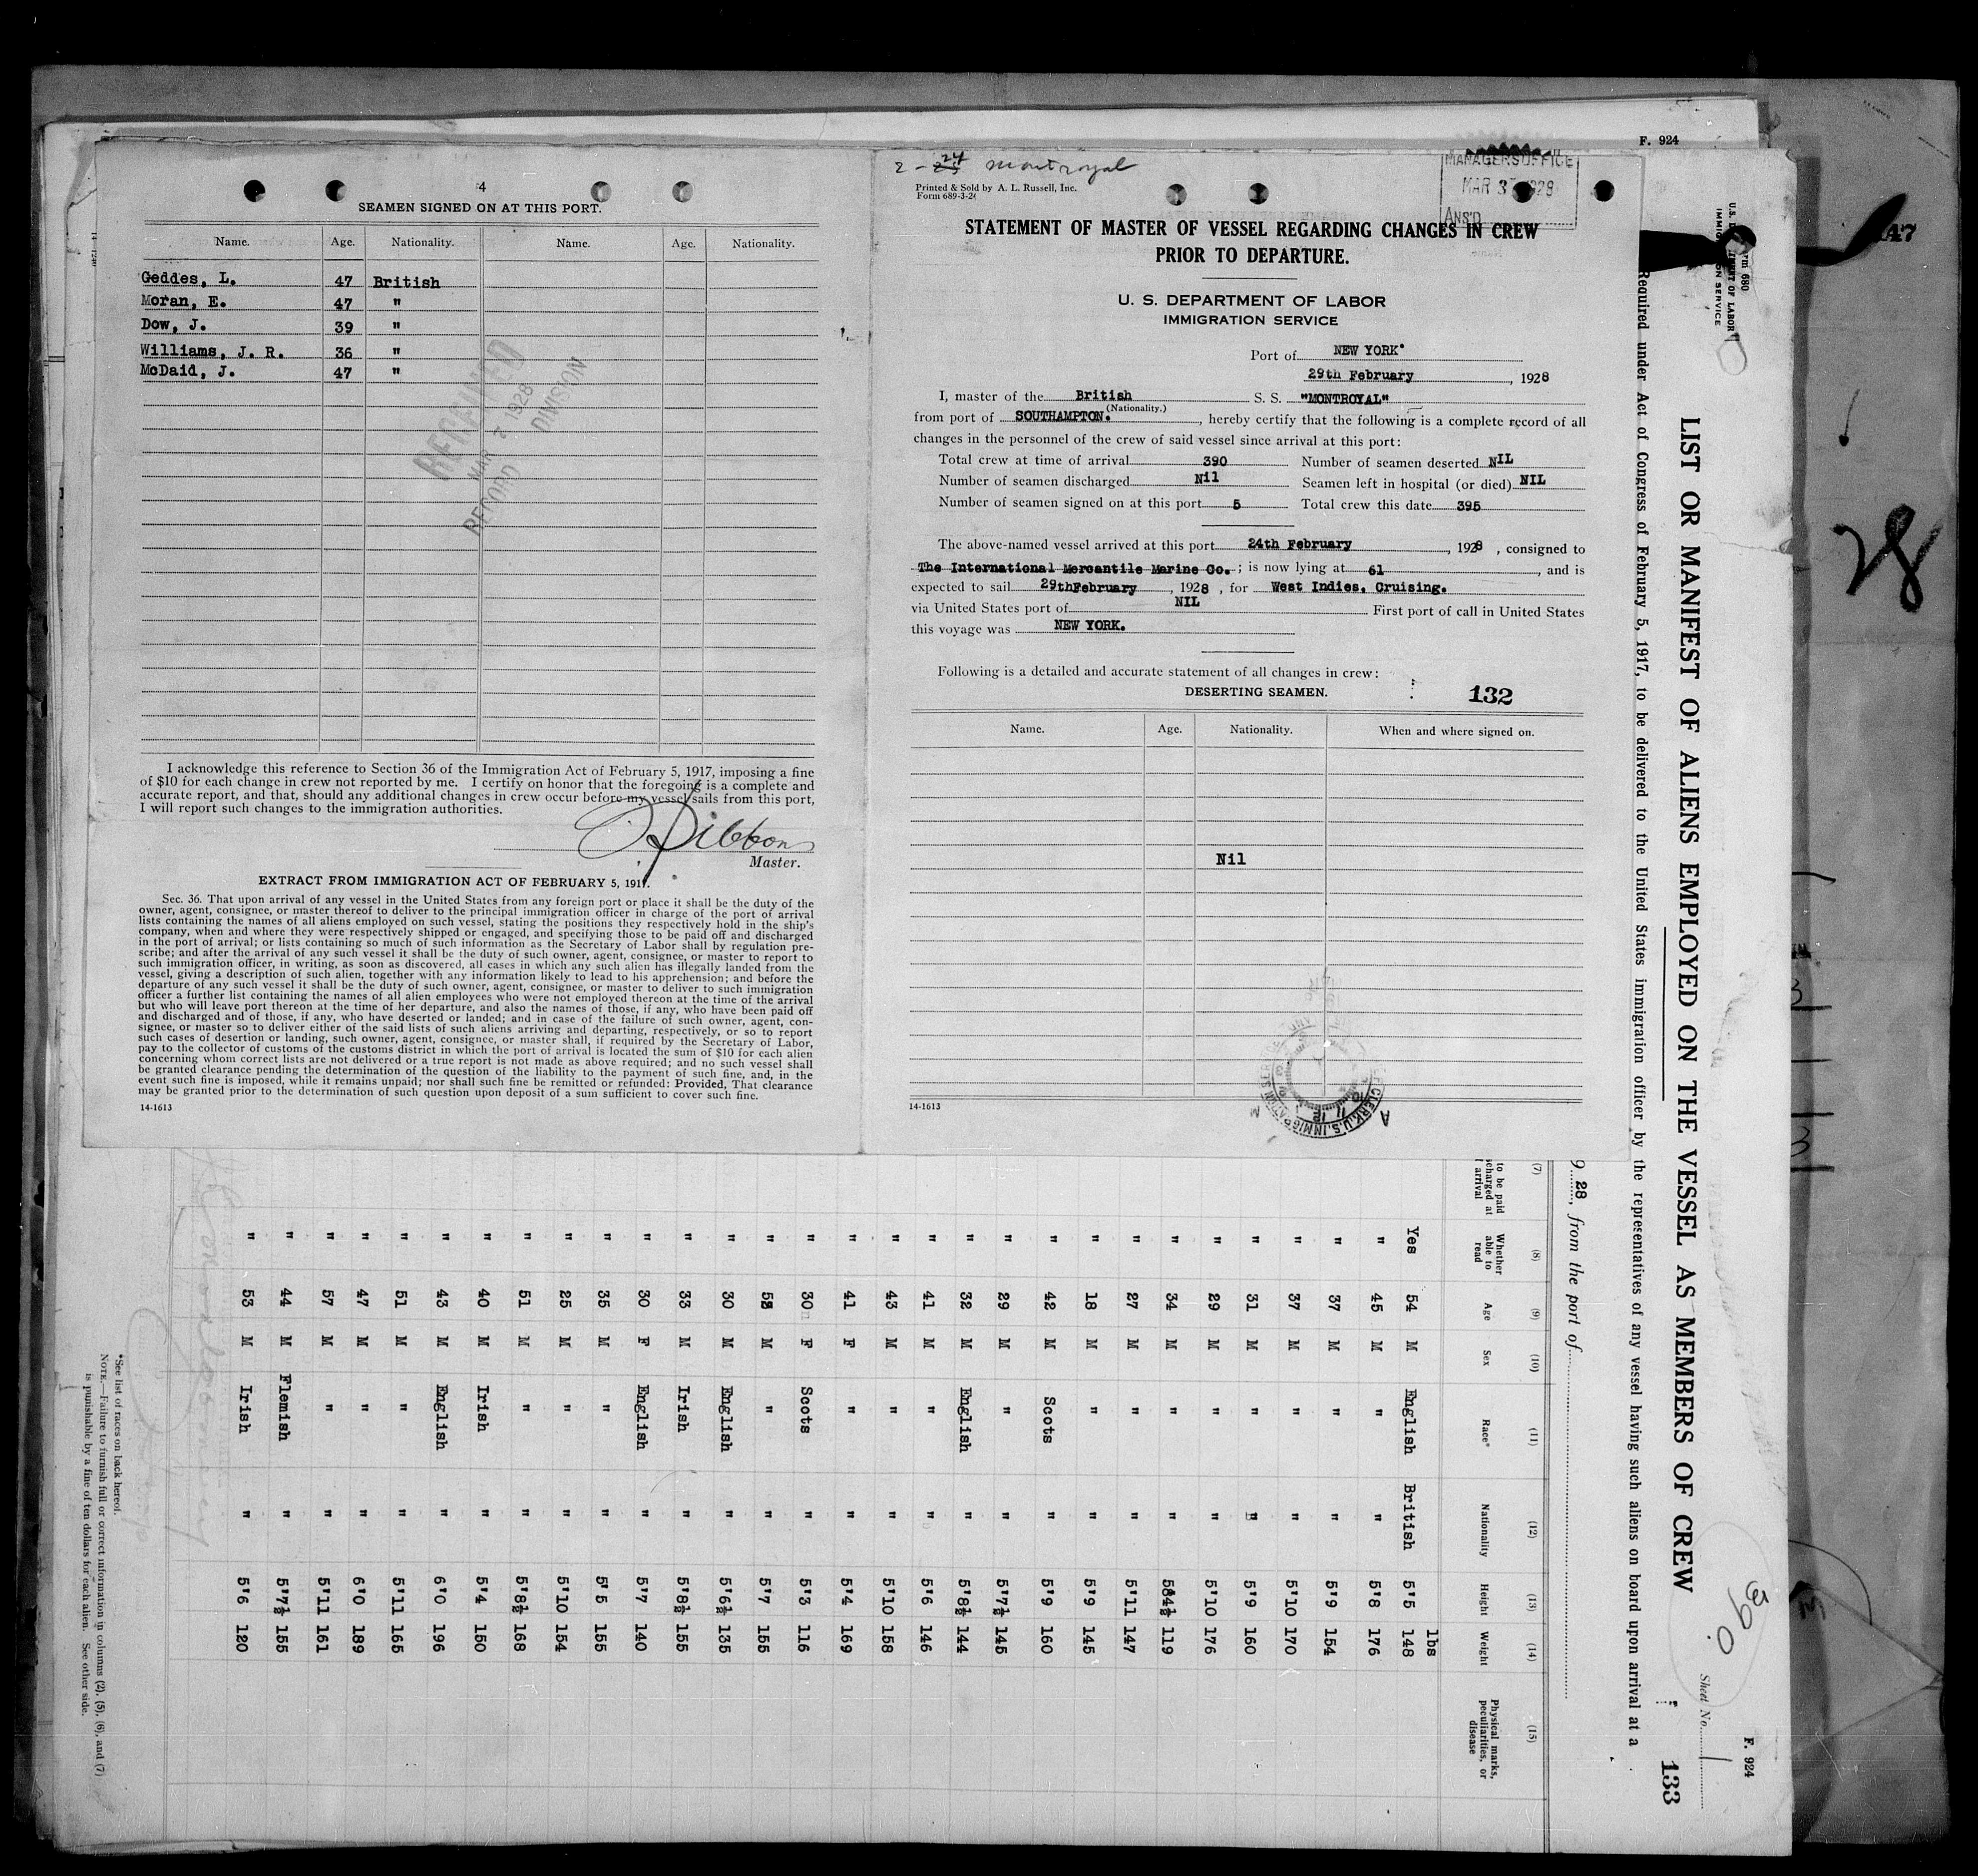 4
SEAMEN SIGNED ON AT THIS PORT.
Name. Age. Nationality. Name. Age. Nationality.
Geddes, L. 47 British
Moran, E. 47 "
Dow, J. 39 "
Williams, J. R. 36 "
McDaid, J. 47 "
RECEIVED
MAR 7 1928
RECORD DIVISION
I acknowledge this reference to Section 36 of the Immigration Act of February 5, 1917, imposing a fine
of $10 for each change in crew not reported by me. I certify on honor that the foregoing is a complete and
accurate report, and that, should any additional changes in crew occur before my vessel sails from this port,
I will report such changes to the immigration authorities.
Master.
EXTRACT FROM IMMIGRATION ACT OF FEBRUARY 5, 1917.
Sec. 36. That upon arrival of any vessel in the United States from any foreign port or place it shall be the duty of the
owner, agent, consignee, or master thereof to deliver to the principal immigration officer in charge of the port of arrival
lists containing the names of all aliens employed on such vessel, stating the positions they respectively hold in the ship's
company, when and where they were respectively shipped or engaged, and specifying those to be paid off and discharged
in the port of arrival; or lists containing so much of such information as the Secretary of Labor shall by regulation pre-
scribe; and after the arrival of any such vessel it shall be the duty of such owner, agent, consignee, or master to report to
such immigration officer, in writing, as soon as discovered, all cases in which any such alien has illegally landed from the
vessel, giving a description of such alien, together with any information likely to lead to his apprehension; and before the
departure of any such vessel it shall be the duty of such owner, agent, consignee, or master to deliver to such immigration
officer a further list containing the names of all alien employees who were not employed thereon at the time of the arrival
but who will leave port thereon at the time of her departure, and also the names of those, if any, who have been paid off
and discharged and of those, if any, who have deserted or landed; and in case of the failure of such owner, agent, con-
signee, or master so to deliver either of the said lists of such aliens arriving and departing, respectively, or so to report
such cases of desertion or landing, such owner, agent, consignee, or master shall, if required by the Secretary of Labor,
pay to the collector of customs of the customs district in which the port of arrival is located the sum of $10 for each alien
concerning whom correct lists are not delivered or a true report is not made as above required; and no such vessel shall
be granted clearance pending the determination of the question of the liability to the payment of such fine, and, in the
event such fine is imposed, while it remains unpaid; nor shall such fine be remitted or refunded: Provided, That clearance
may be granted prior to the determination of such question upon deposit of a sum sufficient to cover such fine.
14-1613
2 - 24 Montroyal
Printed & Sold by A. L. Russell, Inc.
Form 689-3-2
MANAGERS OFFICE
MAR 3 1928
ANS'D
STATEMENT OF MASTER OF VESSEL REGARDING CHANGES IN CREW
PRIOR TO DEPARTURE.
U. S. DEPARTMENT OF LABOR
IMMIGRATION SERVICE
Port of NEW YORK
29th February, 1928
I, master of the British S. S. "MONTROYAL"
(Nationality.)
from port of SOUTHAMPTON., hereby certify that the following is a complete record of all
changes in the personnel of the crew of said vessel since arrival at this port:
Total crew at time of arrival 390 Number of seamen deserted NIL
Number of seamen discharged Nil Seamen left in hospital (or died) NIL
Number of seamen signed on at this port 5 Total crew this date 395
The above-named vessel arrived at this port 24th February, 1928, consigned to
The International Mercantile Marine Co.; is now lying at 61, and is
expected to sail 29thFebruary, 1928, for West Indies, Cruising.
via United States port of NIL First port of call in United States
this voyage was NEW YORK.
Following is a detailed and accurate statement of all changes in crew:
DESERTING SEAMEN. 132
Name. Age. Nationality. When and where signed on.
Nil
14-1613
F. 924
47
28
rm 680
U. S. DEPARTMENT OF LABOR
IMMIGRATION SERVICE
LIST OR MANIFEST OF ALIENS EMPLOYED ON THE VESSEL AS MEMBERS OF CREW
Required under Act of Congress of February 5, 1917, to be delivered to the United States immigration officer by the representatives of any vessel having such aliens on board upon arrival at a
390
Sheet No. 1
F. 924
133
9 28, from the port of
(7) (8) (9) (10) (11) (12) (13) (14) (15)
to be paid
charged at
arrival
Whether able to read
Age
Sex
Race*
Nationality
Height
Weight
Physical marks, peculiarities, or disease
lbs
Yes 54 M English British 5'5 148
" 45 M " " 5'8 176
" 37 M " " 5'9 154
" 37 M " " 5'10 170
" 31 M " " 5'9 160
" 29 M " " 5'10 176
" 34 M " " 119
" 27 M " " 5'11 147
" 18 M " " 5'9 145
" 42 M Scots " 5'9 160
" 29 M " " 5'7½ 145
" 32 M English " 5'8½ 144
" 41 M " " 5'6 146
" 43 M " " 5'10 158
" 41 F " " 5'4 169
" 30 F Scots " 5'3 116
" M " " 5'7 155
" 30 M English " 5'6½ 135
" 33 M Irish " 5'8½ 155
" 30 F English " 5'7 140
" 35 M " " 5'5 155
" 25 M " " 5'10 154
" 51 M " " 5'8½ 168
" 40 M Irish " 5'4 150
" 43 M English " 6'0 196
" 51 M " " 5'11 165
" 47 M " " 6'0 189
" 57 M " " 5'11 161
" 44 M Flemish " 5'7½ 155
" 53 M Irish " 5'6 120
*See list of races on back hereof.
NOTE.—Failure to furnish full or correct information in columns (2), (5), (6), and (7)
is punishable by a fine of ten dollars for each alien. See other side.